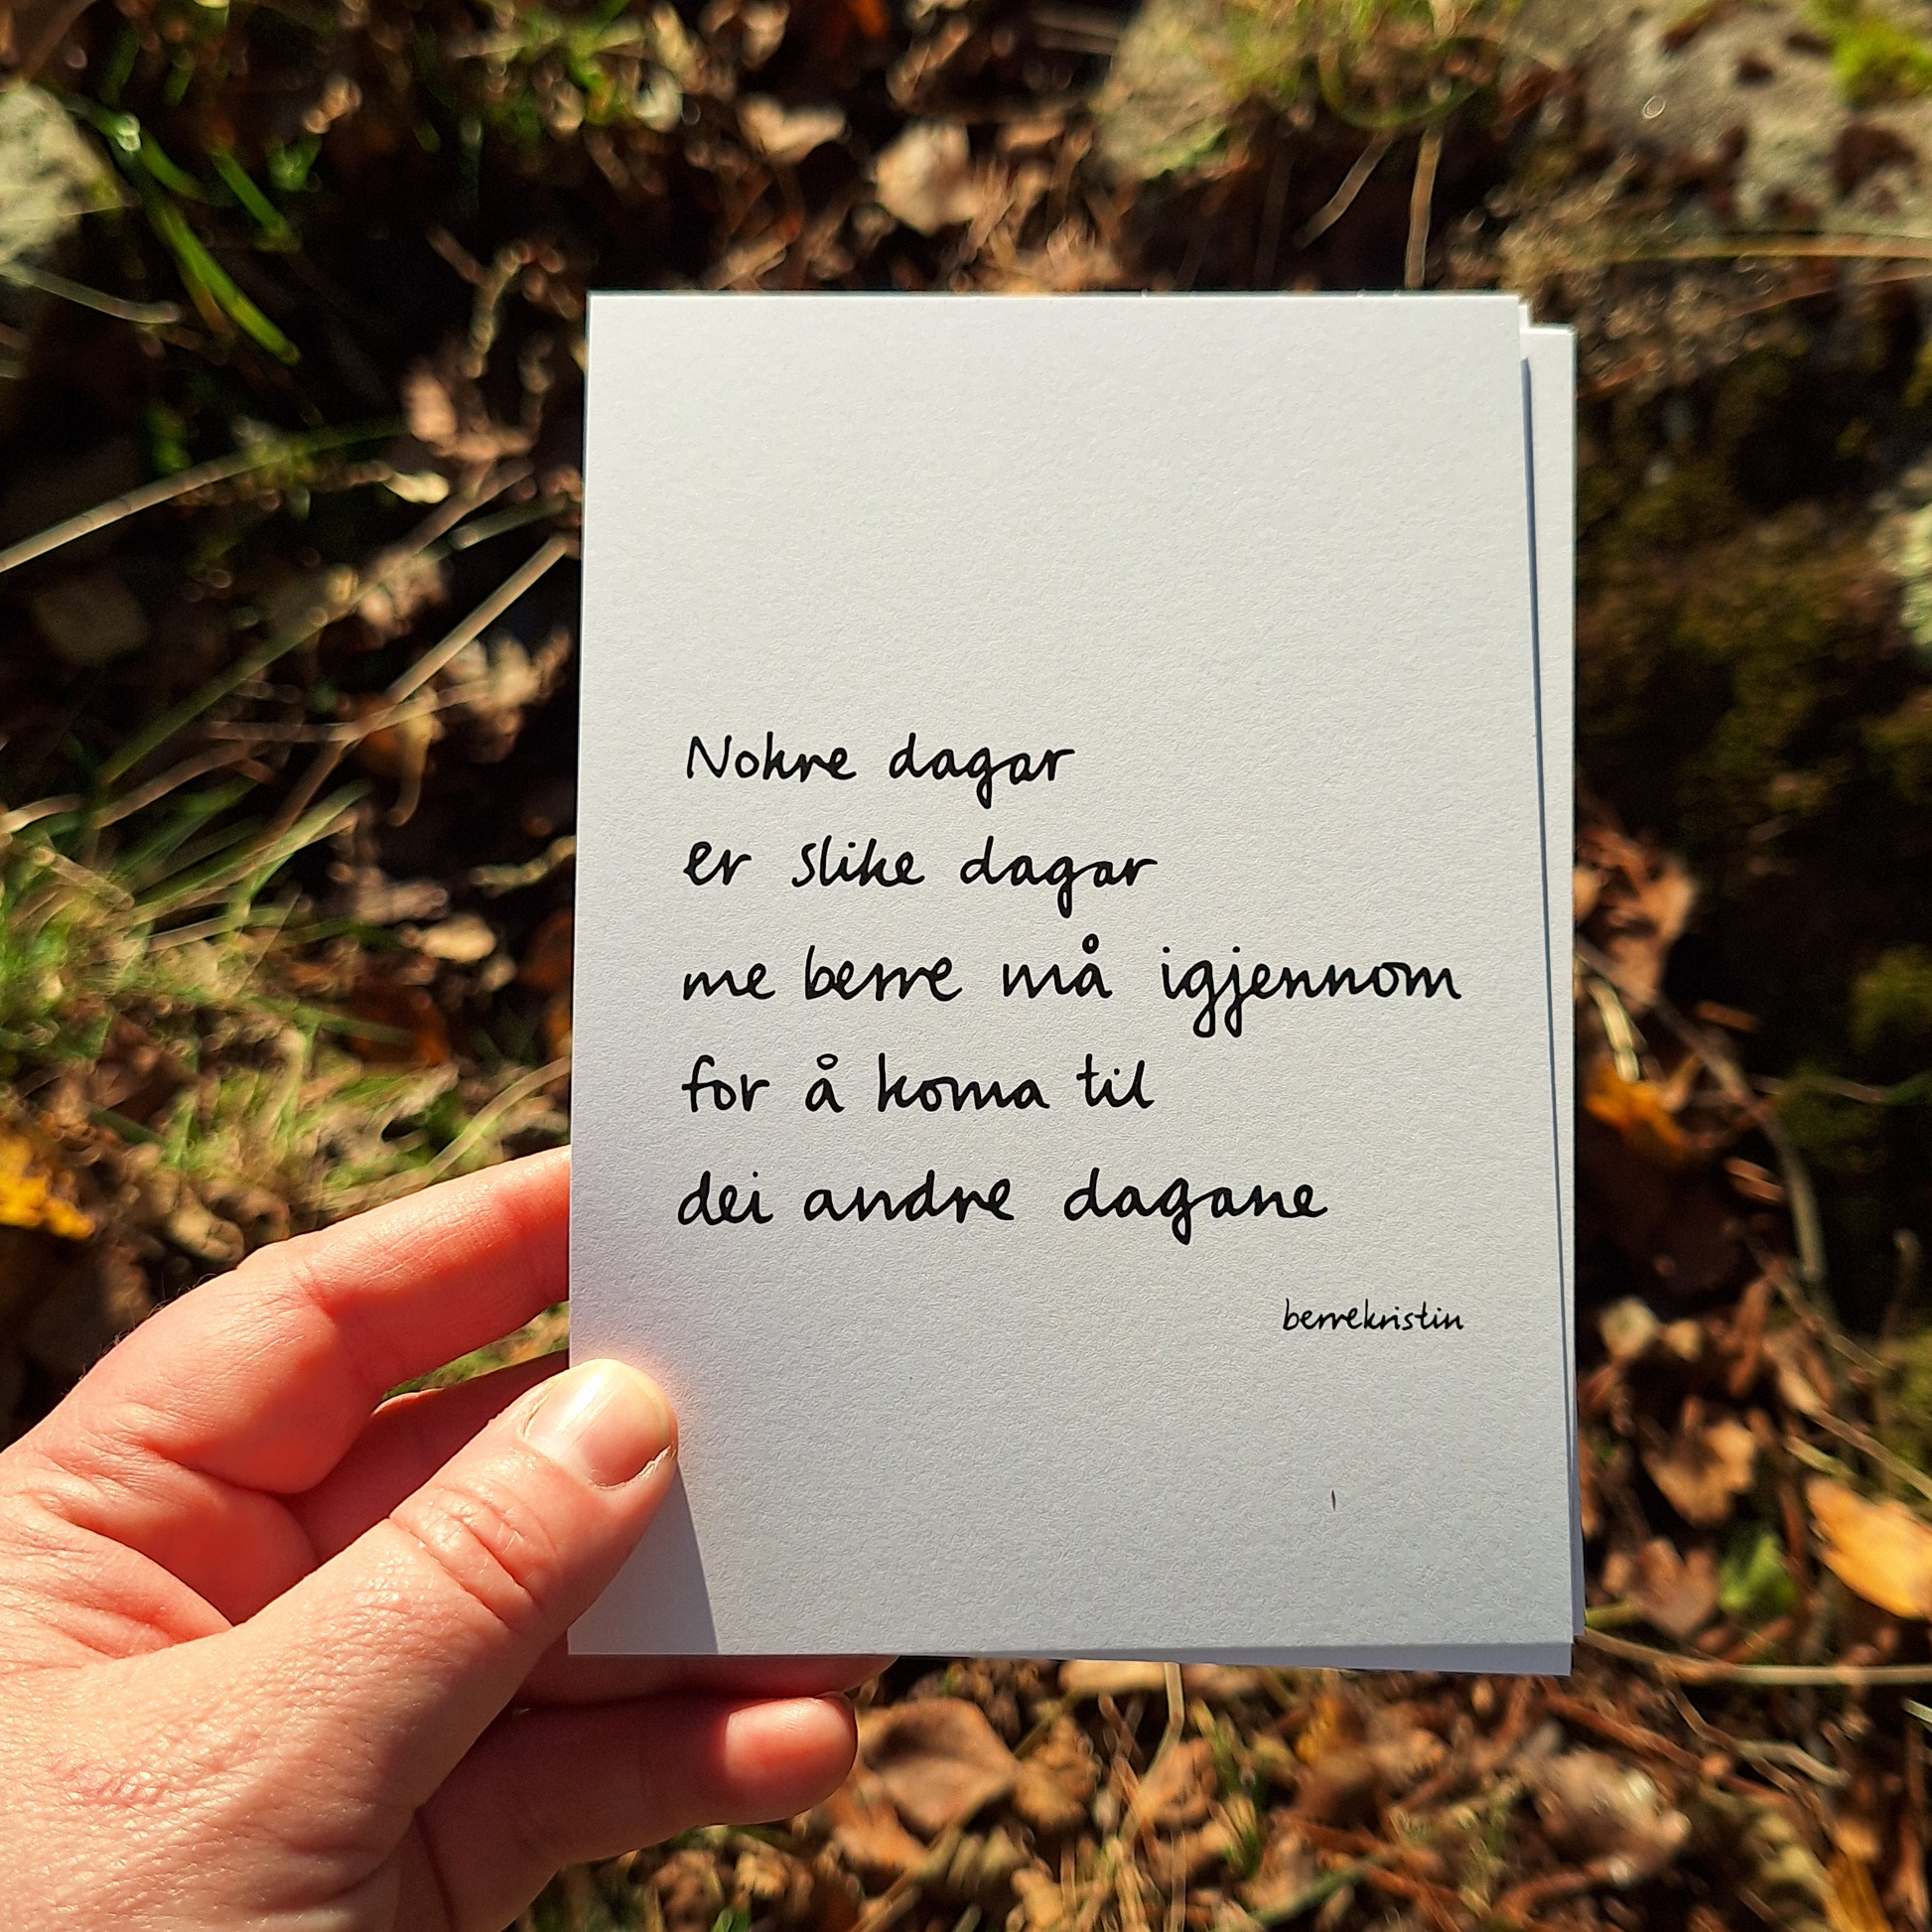 Nokre dagar
er slike dagar
me berre må igjennom
for å koma til
dei andre dagane
berrekristin